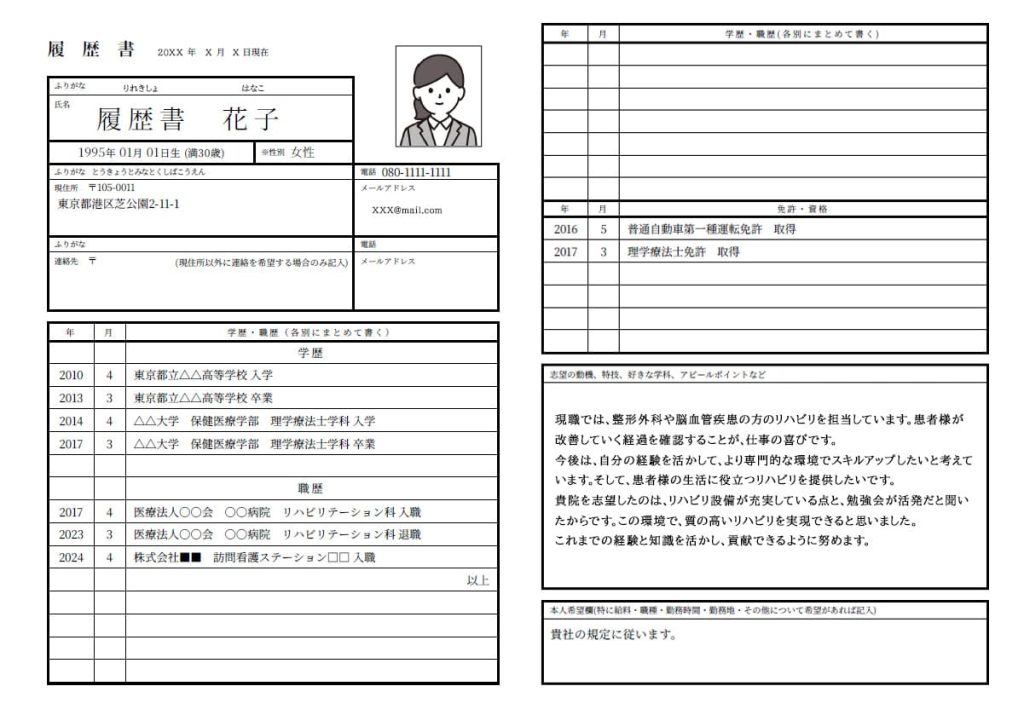 履 歴 書 20XX 年 X 月 X 日現在
ふりがな りれきしょ はなこ
氏名
履歴書 花子
1995年 01月 01日生 (満30歳) ※性別 女性
ふりがな とうきょうとみなとくしばこうえん
現住所 〒105-0011
東京都港区芝公園2-11-1
電話 080-1111-1111
メールアドレス
XXX@mail.com
ふりがな
連絡先 〒 (現住所以外に連絡を希望する場合のみ記入)
電話
メールアドレス
年 月 学歴・職歴（各別にまとめて書く）
学歴
2010 4 東京都立△△高等学校 入学
2013 3 東京都立△△高等学校 卒業
2014 4 △△大学 保健医療学部 理学療法士学科 入学
2017 3 △△大学 保健医療学部 理学療法士学科 卒業
職歴
2017 4 医療法人〇〇会 〇〇病院 リハビリテーション科 入職
2023 3 医療法人〇〇会 〇〇病院 リハビリテーション科 退職
2024 4 株式会社■■ 訪問看護ステーション□□ 入職
以上
年 月 学歴・職歴(各別にまとめて書く)
年 月 免許・資格
2016 5 普通自動車第一種運転免許 取得
2017 3 理学療法士免許 取得
志望の動機、特技、好きな学科、アピールポイントなど
現職では、整形外科や脳血管疾患の方のリハビリを担当しています。患者様が
改善していく経過を確認することが、仕事の喜びです。
今後は、自分の経験を活かして、より専門的な環境でスキルアップしたいと考えて
います。そして、患者様の生活に役立つリハビリを提供したいです。
貴院を志望したのは、リハビリ設備が充実している点と、勉強会が活発だと聞い
たからです。この環境で、質の高いリハビリを実現できると思いました。
これまでの経験と知識を活かし、貢献できるように努めます。
本人希望欄(特に給料・職種・勤務時間・勤務地・その他について希望があれば記入)
貴社の規定に従います。